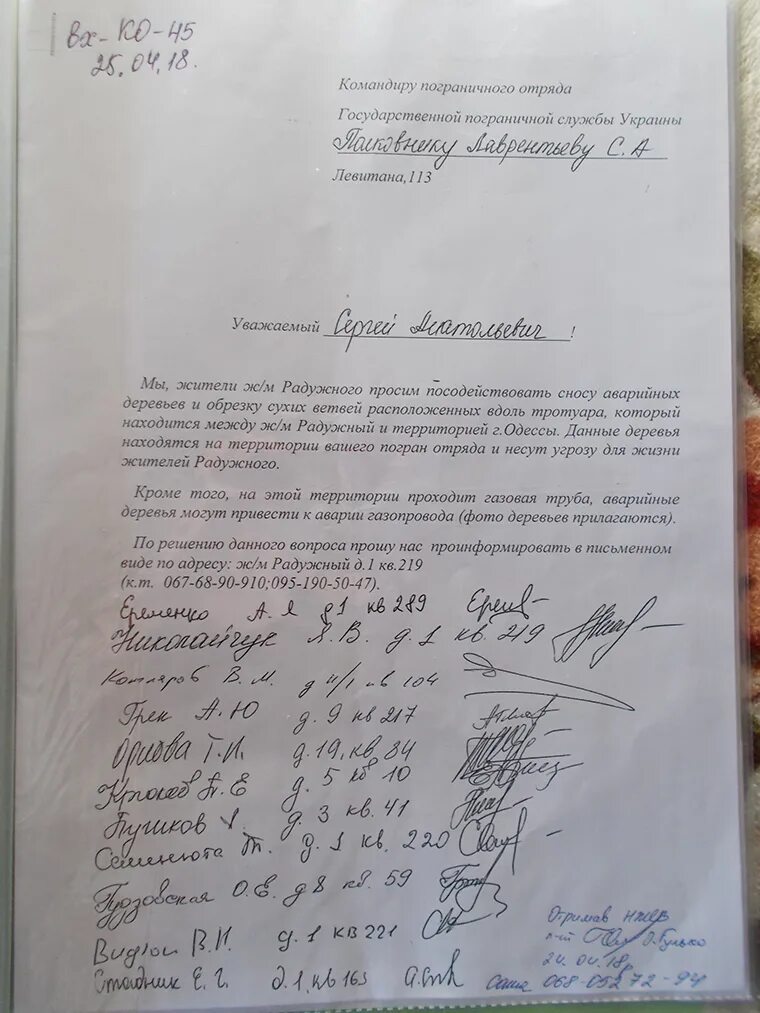 Вх-КО-45
25.04.18.
Командиру пограничного отряда
Государственной пограничной службы Украины
Полковнику Лаврентьеву С. А
Левитана,113
Уважаемый Сергей Анатольевич !
Мы, жители ж/м Радужного просим посодействовать сносу аварийных
деревьев и обрезку сухих ветвей расположенных вдоль тротуара, который
находится между ж/м Радужный и территорией г.Одессы. Данные деревья
находятся на территории вашего погран отряда и несут угрозу для жизни
жителей Радужного.
Кроме того, на этой территории проходит газовая труба, аварийные
деревья могут привести к аварии газопровода (фото деревьев прилагаются).
По решению данного вопроса прошу нас проинформировать в письменном
виде по адресу: ж/м Радужный д.1 кв.219
(к.т. 067-68-90-910;095-190-50-47).
Еременко А. Я д1 кв 289
Николайчук Л. В. д. 1 кв. 219
Котляров В. М. д 11/1 кв 104
Грек А. Ю д. 9 кв 217
Орлова Т. И. д. 19, кв. 84
Крюков П. Е д. 5 кв 10
Пушков д. 3 кв. 41
Семенюта Т. д. 1 кв. 220
Гудзовская О. Е. д 8 кв. 59
В. И. д. 1 кв 221
Стадник Е. Г. д. 1, кв 163
Отримав
24.04.18р
Саша 068-052 72-94